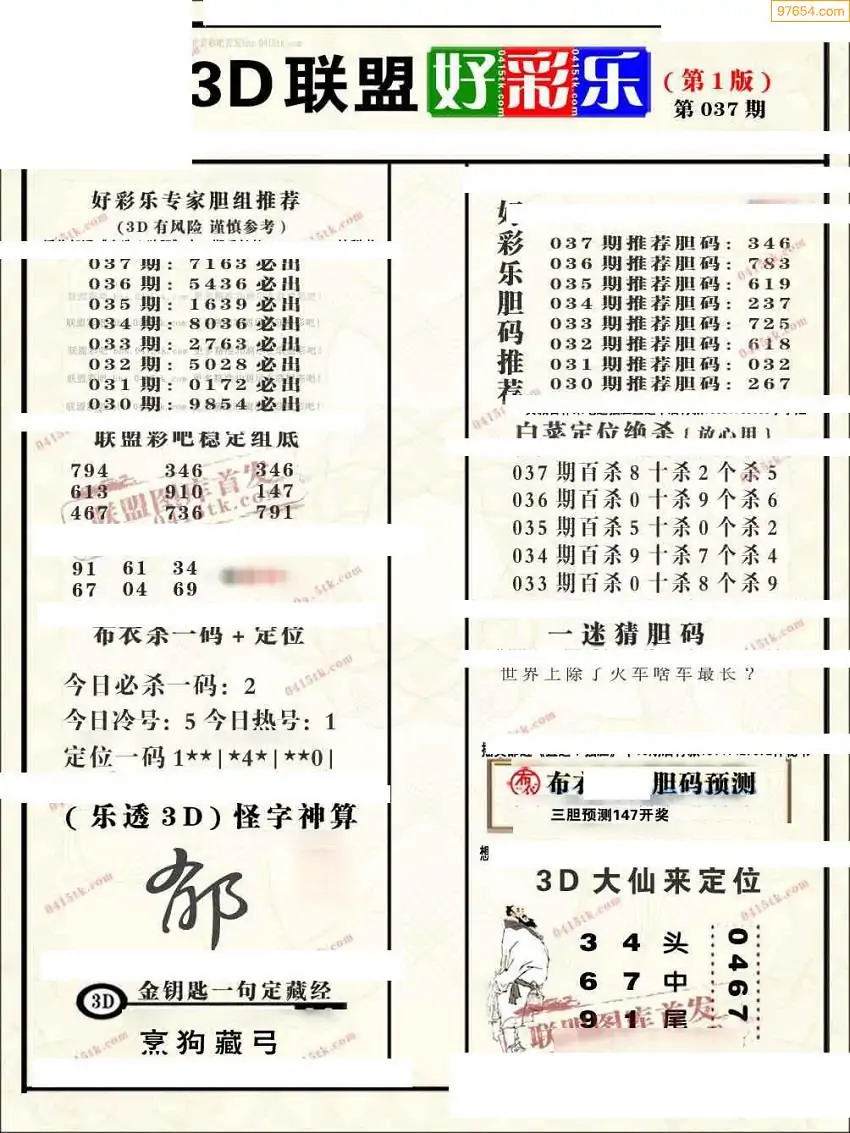 97654.com
3D联盟好彩乐
(第1版)
第037期
好彩乐专家胆组推荐
(3D有风险 谨慎参考)
037期：7163必出
036期：5436必出
035期：1639必出
034期：8036必出
033期：2763必出
032期：5028必出
031期：0172必出
030期：9854必出
联盟彩吧稳定组底
794 346 346
613 910 147
467 736 791
91 61 34
67 04 69
布衣杀一码+定位
今日必杀一码：2
今日冷号：5 今日热号：1
定位一码1**|*4*|**0|
(乐透3D)怪字神算
郁
3D 金钥匙一句定藏经
烹狗藏弓
好彩乐胆码推荐
037期推荐胆码：346
036期推荐胆码：783
035期推荐胆码：619
034期推荐胆码：237
033期推荐胆码：725
032期推荐胆码：618
031期推荐胆码：032
030期推荐胆码：267
白菜定位绝杀{放心用}
037期百杀8十杀2个杀5
036期百杀0十杀9个杀6
035期百杀5十杀0个杀2
034期百杀9十杀7个杀4
033期百杀0十杀8个杀9
一迷猜胆码
世界上除了火车啥车最长？
布衣 胆码预测
三胆预测147开奖
想
3D大仙来定位
3 4 头
6 7 中
9 1 尾
0467
联盟图库首发
0415tk.com